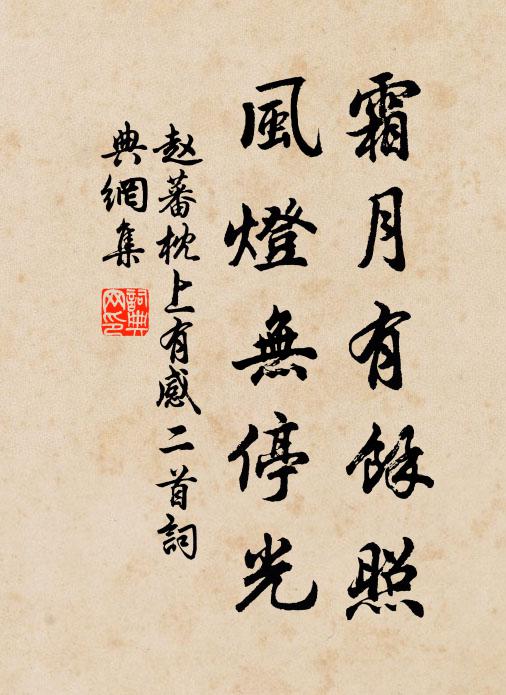 霜月有餘照
風燈無停光
赵蕃枕上有感二首詞
典網集
詞典
网印